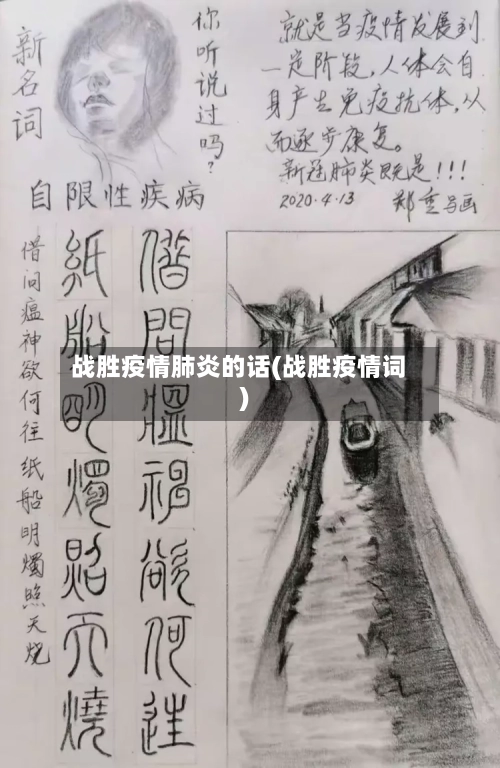 新名词
你听说过吗？
就是当疫情发展到
一定阶段，人体会自
身产生免疫抗体，从
而逐步康复。
新冠肺炎既是！！！
2020.4.13 郑重 写画
自限性疾病
借问瘟神欲何往纸船明烛照天烧
借問瘟神欲何往
紙船明燭照天燒
战胜疫情肺炎的话(战胜疫情词
)